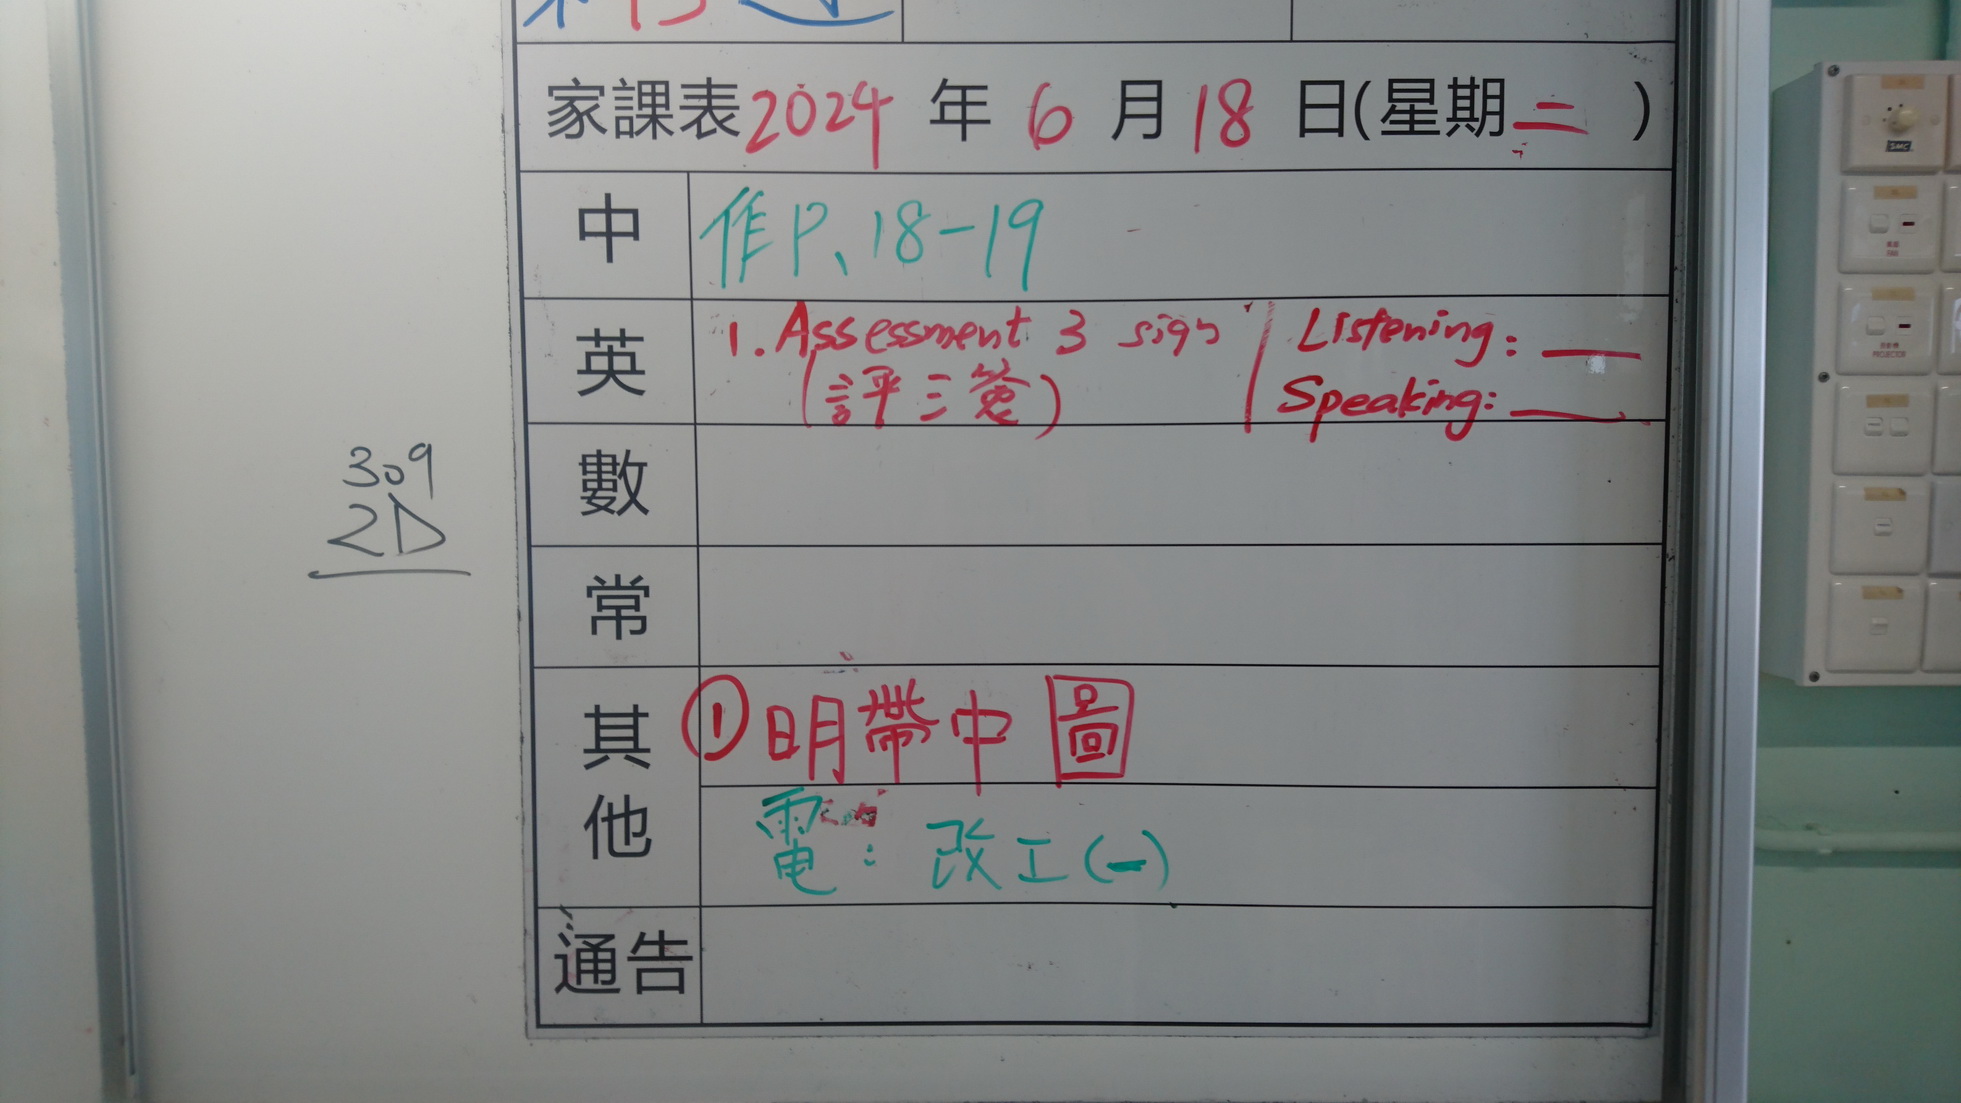 家課表2024年6月18日(星期二)
中 作P、18-19
英 1. Assessment 3 sign
(評三簽)
Listening: ___
Speaking: ___
數
常
309
2D
其他 ①明帶中圖
電: 改工(一)
通告
SMC